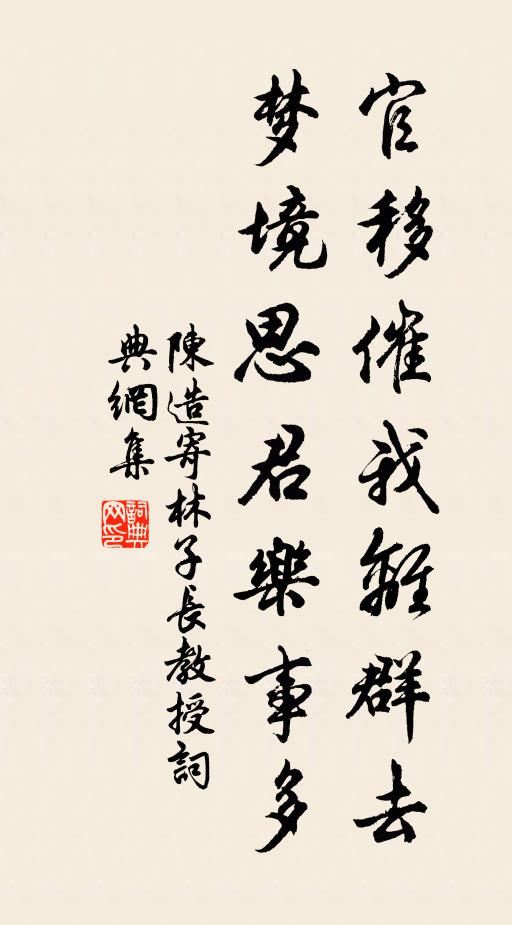 官移催我離群去
梦境思君樂事多
陳造寄林子長教授詞
典網集
詞典网印